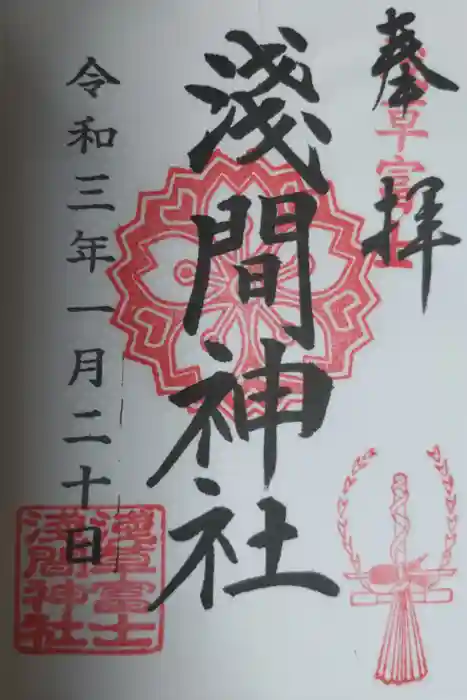 奉拝
浅草富士
淺間神社
令和三年一月二十日
淺草富士
浅間神社